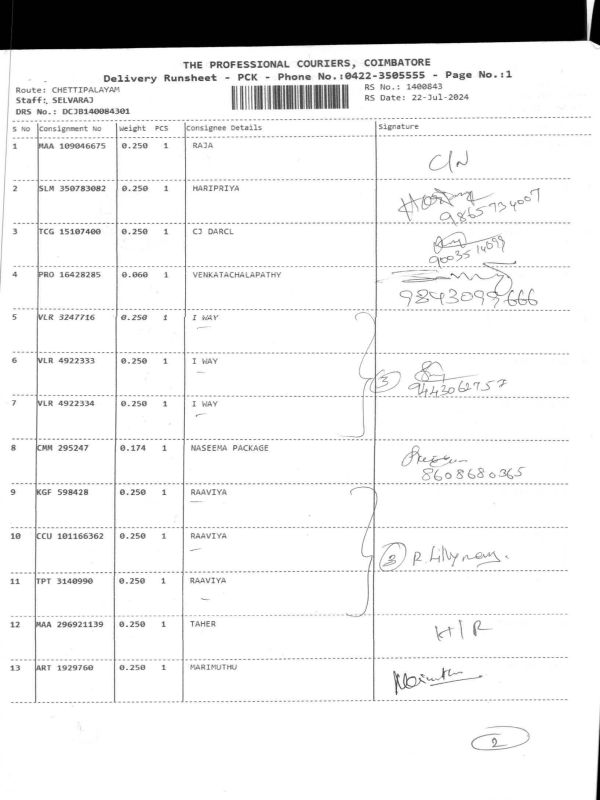 THE PROFESSIONAL COURIERS, COIMBATORE
Delivery Runsheet - PCK - Phone No.:0422-3505555 - Page No.:1
Route: CHETTIPALAYAM RS No.: 1400843
Staff: SELVARAJ RS Date: 22-Jul-2024
DRS No.: DCJB140084301
S No Consignment No Weight PCS Consignee Details Signature
1 MAA 109046675 0.250 1 RAJA
C/N
2 SLM 350783082 0.250 1 HARIPRIYA
9865734007
3 TCG 15107400 0.250 1 CJ DARCL
9003514099
4 PRO 16428285 0.060 1 VENKATACHALAPATHY
9843099666
5 VLR 3247716 0.250 1 I WAY
6 VLR 4922333 0.250 1 I WAY
3
9443062757
7 VLR 4922334 0.250 1 I WAY
8 CMM 295247 0.174 1 NASEEMA PACKAGE
8608680365
9 KGF 598428 0.250 1 RAAVIYA
10 CCU 101166362 0.250 1 RAAVIYA
3 R
11 TPT 3140990 0.250 1 RAAVIYA
12 MAA 296921139 0.250 1 TAHER
H/R
13 ART 1929760 0.250 1 MARIMUTHU
2